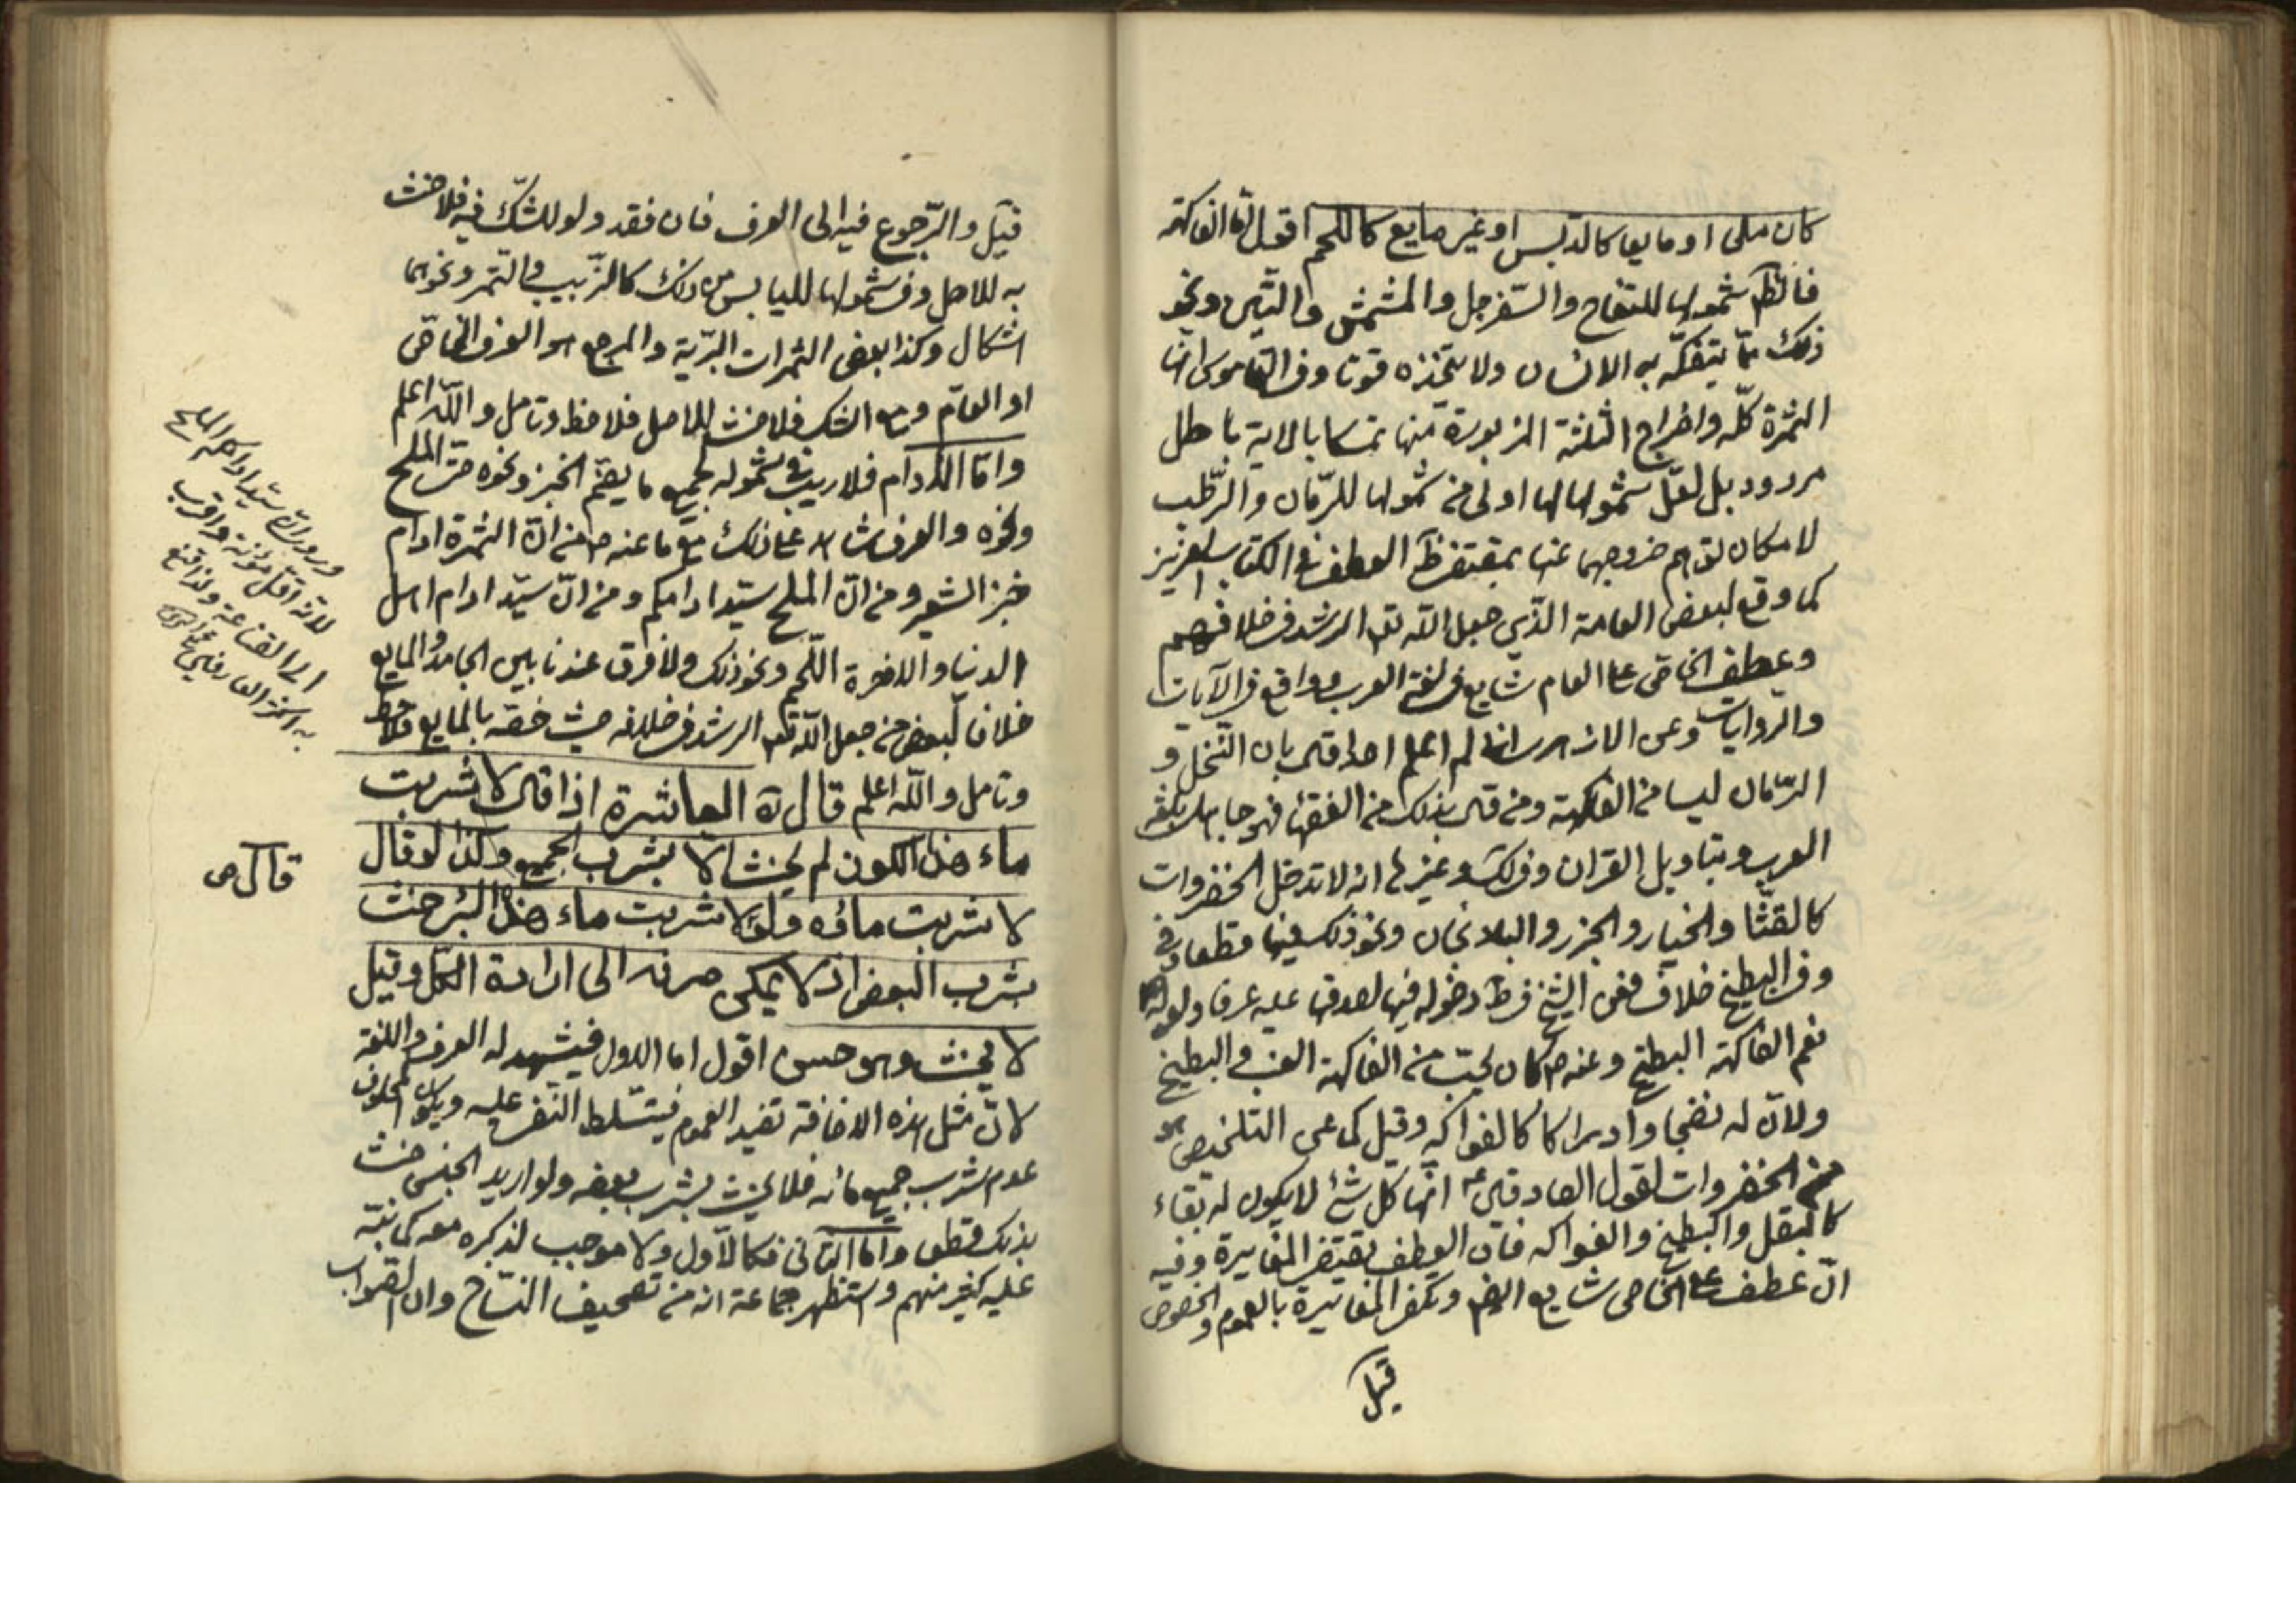 كان ملحا او مايعا كالدبس او غير مايع كاللحم اقول امّا الفاكهة
فالظ شمولها للتفاح والسّفرجل والمشمش والتّين ونحو
ذلك ممّا يتفكّه به الانسان ولا يتّخذه قوتا وفى القاموس انها
الثمرة كلّه واخراج الثلثة المزبورة منها تمسكا بالاية باطل
مردود بل لعلّ شمولها لها اولى من شمولها للرّمان والرّطب
لامكان توهم خروجهما عنها بمقتضى العطف فى الكتاب العزيز
كما وقع لبعض العامة الّذين جعل اللّه تع الرشد فى خلافهم
وعطف الخاصّ على العام شايع فى لغة العرب وواقع فى الآيات
والرّوايات وعن الازهرى انه لم اعلم احدا قال بان النّخل و
الرّمان ليسا من الفاكهة ومن قال بذلك من الفقهاء فهو جاهل بلغة
العرب وبتاويل القران وفى وغيرها انه لا تدخل الخضروات
كالقثّا والخيار والجزر والبلانجان ونحو ذلك فيها قطعا وفى
وفى البطيخ خلاف فعن الشيخ دخوله فيها لصدقها عليه عرفا ولقوله
نعم الفاكهة البطيخ وعنه ص كان يحبّ من الفاكهة العنب والبطيخ
ولانّ له نضجا وادراكا كالفواكه وقيل كما عن التلخيص هو
من الخضروات لقول الصادق ع انها كل شئ لا يكون له بقاء
كالبقل والبطيخ والفواكه فان العطف يقتضى المغايرة وفيه
انّ عطف على الخاص شايع ويكفى المغايرة بالعموم والخصوص
قيل
قيل والرّجوع فيه الى العرف فان فقد ولو للشّك فيه فلا حنث
به للاصل وفى شمولها لليابس من ذلك كالزّبيب والتمر ونحوهما
اشكال وكذا بعض الثمرات البرّية والمرجع هو العرف الخاصّ
او العامّ ومع الشك فلا حنث للاصل فلاحظ وتامل واللّه اعلم
وامّا الادام فلا ريب فى شموله لجميع ما يضمّ الخبز ونحوه حتى الملح
ونحوه والعرف شاهد على ذلك مع ما عنه ص من انّ الثمرة ادام
خبز الشعير ومن انّ الملح سيّد ادامكم ومن انّ سيّد ادام اهل
الدنيا والاخرة اللّحم ونحو ذلك ولا فرق عندنا بين الجامد والمايع
خلافا لبعض من جعل اللّه تع الرشد فى خلافه حيث خصّه بالمايع فلاحظ
وتامل واللّه اعلم قال ره العاشرة اذا قال لا شربت
ماء هذا الكوز لم يحنث الا بشرب الجميع وكذا لو قال
لا شربت ماؤه ولو قال لا شربت ماء هذا البئر حنث
بشرب البعض اذ لا يمكن صرفه الى ارادة الكل وقيل
لا يحنث وهو حسن اقول اما الاول فيشهد له العرف واللغة
لانّ مثل هذه الاضافة تفيد العموم فيتسّلط النّفى عليه ويكون المحلوف
عدم شرب جميع مائه فلا يحنث بشرب بعضه ولو اريد الجنس حنث
بذلك قطعا وامّا الثانى فكالاّول ولا موجب لذكره معه كما نبّه
عليه كثير منهم واستظهر جماعة انه من تصحيف النسّاخ وان الصّواب
وروى انّ سيّد ادامكم الملح
لانّه اقلّ مؤنة واقرب
الى القناعة ولذا قنع
به اكثر العارفين
قال ص